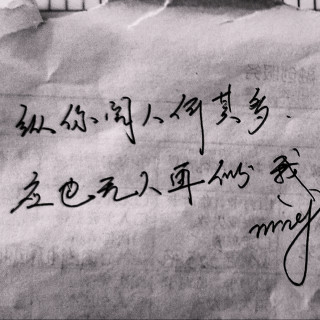 纵你阅人何其多.
应也无人再似我